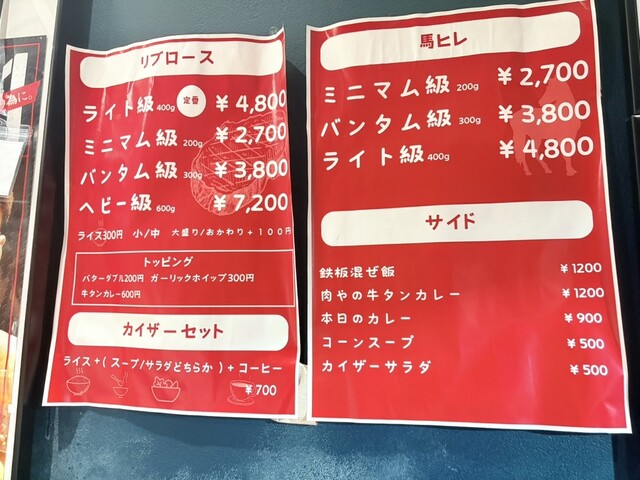 為に。
リブロース
ライト級 400g 定番 ¥4,800
ミニマム級 200g ¥2,700
バンタム級 300g ¥3,800
ヘビー級 600g ¥7,200
ライス300円 小/中 大盛り/おかわり+100円
トッピング
バターダブル200円 ガーリックホイップ300円
牛タンカレー600円
カイザーセット
ライス+(スープ/サラダどちらか)+コーヒー
¥700
馬ヒレ
ミニマム級 200g ¥2,700
バンタム級 300g ¥3,800
ライト級 400g ¥4,800
サイド
鉄板混ぜ飯 ¥1200
肉やの牛タンカレー ¥1200
本日のカレー ¥900
コーンスープ ¥500
カイザーサラダ ¥500